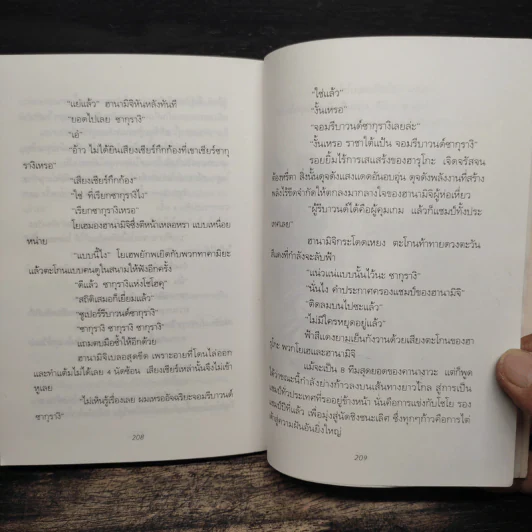 "แย่แล้ว" ฮานามิจิหันหลังทันที
"ยอดไปเลย ซากุรางิ"
"เอ๋"
"อ้าว ไม่ได้ยินเสียงเชียร์กึกก้องที่เขาเชียร์ซากุ
รางิเหรอ"
"เสียงเชียร์กึกก้อง"
"ใช่ ที่เรียกซากุรางิไง"
"เรียกซากุรางิเหรอ"
โยเฮมองฮานามิจิซึ่งตีหน้าเหลอหรา แบบเหนื่อย
หน่าย
"แบบนี้ไง" โยเฮพยักเพยิดกับพวกทาคามิยะ
แล้วตะโกนแบบคนดูในสนามให้ฟังอีกครั้ง
"ดีแล้ว ซากุรางิแห่งโชโฮคุ"
"สถิติเสมอก็เยี่ยมแล้ว"
"ซูเปอร์รีบาวนด์ซากุรางิ"
"ซากุรางิ ซากุรางิ ซากุรางิ"
แถมตบมือซ้ำให้อีกด้วย
ฮานามิจิเบลอสุดขีด เพราะอายที่โดนไล่ออก
และทำแต้มไม่ได้เลย 4 นัดซ้อน เสียงเชียร์เหล่านั้นจึงไม่เข้า
หูเลย
"ไม่เห็นรู้เรื่องเลย ผมเหรออัจฉริยะจอมรีบาวนด์
ซากุรางิ"
208
"ใช่แล้ว"
"งั้นเหรอ"
"จอมรีบาวนด์ซากุรางิเลยล่ะ"
"งั้นเหรอ ราชาใต้แป้น จอมรีบาวนด์ซากุรางิ"
รอยยิ้มไร้การเสแสร้งของฮารุโกะ เจิดจรัสจน
ต้องหรี่ตา สิ่งนั้นดุจดังแสงแดดอันอบอุ่น ดุจดังพลังงานที่สร้าง
พลังไร้ขีดจำกัดให้ตกลงมากลางใจของฮานามิจิผู้ห่อเหี่ยว
"ผู้รีบาวนด์ได้คือผู้คุมเกม แล้วก็แชมป์ทั้งประ
เทศเลย"
ฮานามิจิกระโดดเหยง ตะโกนท้าทายดวงตะวัน
สีแดงที่กำลังจะลับฟ้า
"แน่วแน่แบบนั้นไว้นะ ซากุรางิ"
"นั่นไง คำประกาศครองแชมป์ของฮานามิจิ"
"ติดลมบนไปซะแล้ว"
"ไม่มีใครหยุดอยู่แล้ว"
ฟ้าสีแดงยามเย็นกังวานด้วยเสียงตะโกนของฮา
รุโกะ พวกโยเฮและฮานามิจิ
แม้จะเป็น 8 ทีมสุดยอดของคานางาวะ แต่ก็พูด
ได้ว่าขณะนี้กำลังย่างก้าวลงบนเส้นทางยาวไกล สู่การเป็น
แชมป์ทั่วประเทศที่รออยู่ข้างหน้า นั่นคือการแข่งกับโชโย รอง
แชมป์ปีที่แล้ว เพื่อมุ่งสู่นัดชิงชนะเลิศ ซึ่งทุกๆก้าวคือการไต่
เต้าสู่ความฝันอันยิ่งใหญ่
209